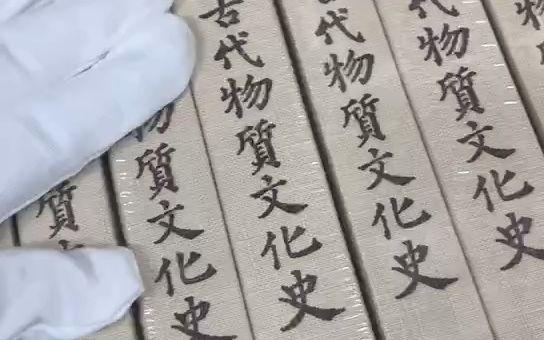 質
物質文化史
古代物質文化史
代物質文化史
代物質文化史
物